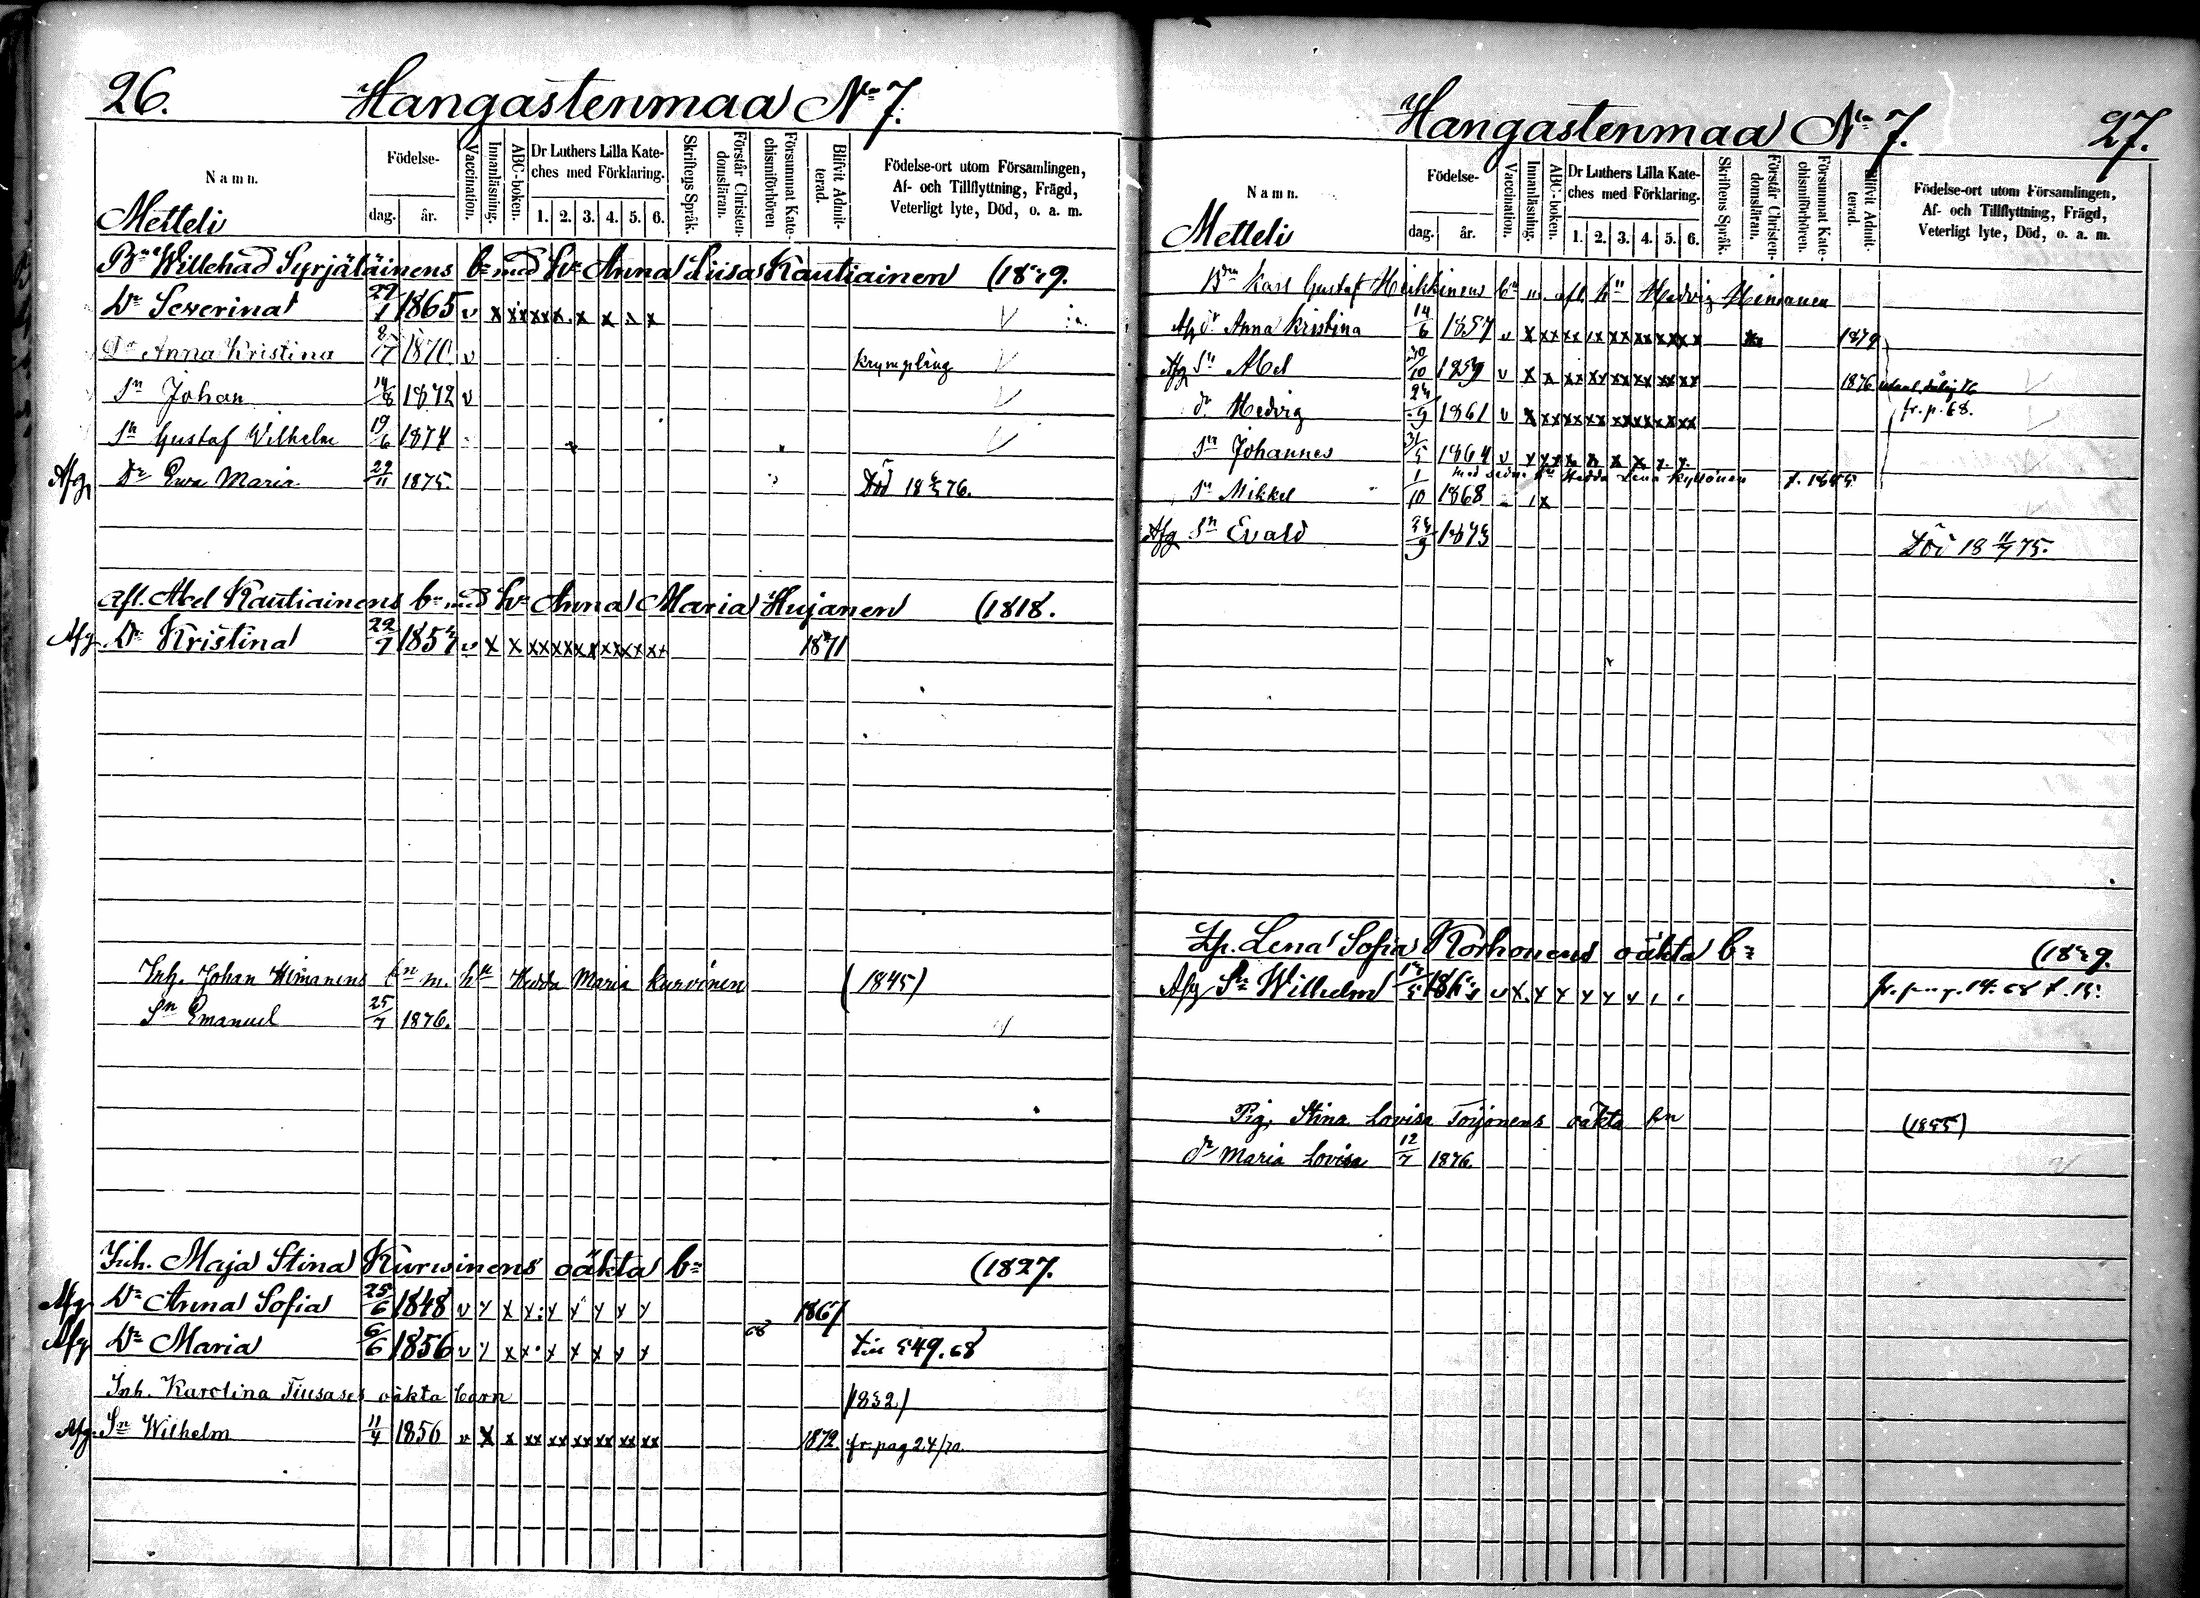 26.
Hangastenmaa No 7.
Namn.
Födelse-
dag. år.
Vaccination.
Innanläsning.
ABC-boken.
Dr Luthers Lilla Kate-
ches med Förklaring.
1. 2. 3. 4. 5. 6.
Skriftens Språk.
Förstår Christen-
domsläran.
Försummat Kate-
chismiförhören
Blifvit Admit-
terad.
Födelse-ort utom Församlingen,
Af- och Tillflyttning, Frägd,
Veterligt lyte, Död, o. a. m.
Metteli
Bn Willehad Syrjäläinens bn med hu Anna Liisa Kautiainen
Dr Severina 1865 v x xx xx x x x x
Dr Anna Kristina 1870 v krympling
Sn Johan 14/8 1872 v
Sn Gustaf Wilhelm 19/6 1874
Afg Dr Ewa Maria 29/11 1875. Död
Afl. Abel Kautiainens bn med hu Anna Maria Hujanen (1818.
Afg Dr Kristina v x x xx xx xx xx xx xx 1871
Inh. Johan Himanens bn m. hu Hedda Maria Kurvinen (1845)
Sn Emanuel 25/7 1876.
Inh. Maja Stina Kurwinens oäkta bn (1827.
Afg Dr Anna Sofia 25/6 1848 v x x x x x x x x 1867
Afg Dr Maria 6/6 1856 v x x x x x x x x 68 till 549.68
Inh. Karolina Tiusases oäkta barn
Afg. Sn Wilhelm 1856 v x x xx xx xx xx xx xx 1872. fr. pag 24/70
Hangastenmaa No 7.
27.
Namn.
Födelse-
dag. år.
Vaccination.
Innanläsning.
ABC-boken.
Dr Luthers Lilla Kate-
ches med Förklaring.
1. 2. 3. 4. 5. 6.
Skriftens Språk.
Förstår Christen-
domsläran.
Försummat Kate-
chismiförhören.
Blifvit Admit-
terad.
Födelse-ort utom Församlingen,
Af- och Tillflyttning, Frägd,
Veterligt lyte, Död, o. a. m.
Metteli
Bdn Karl Gustaf Heikkinens bn m. afl. hu Hedvig Himanen
Afg dr Anna Kristina 14/6 1857 v x xx xx xx xx xx xx xx
Afg Sn Abel 30/10 1859 v x x xx xx xx xx xx xx 1876
dr Hedvig 1861 v x xx xx xx xx xx xx xx fr. p. 68.
Sn Johannes 31/5 1864 v x xx x x x x x x
med sedn. hu Hedda Lena Kyllönen
Sn Mikkel 1/10 1868
Afg Sn Evald 1873 Död
Lena Sofia Korhonens oäkta bn
Afg Sn Wilhelm v x x x x x x
Pig. Stina Lovisa Toijonens oäkta bn (1855)
dr Maria Lovisa 12/7 1876.